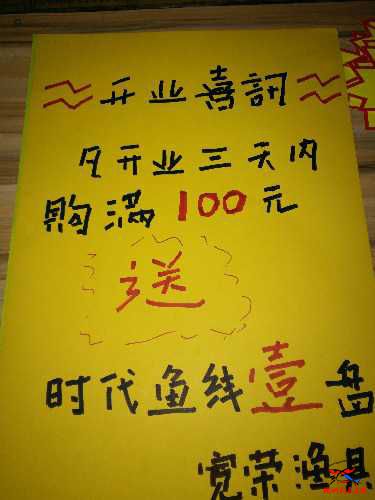 开业喜訊
凡开业三天内
购满100元
送
时代鱼线壹盘
宽荣渔具